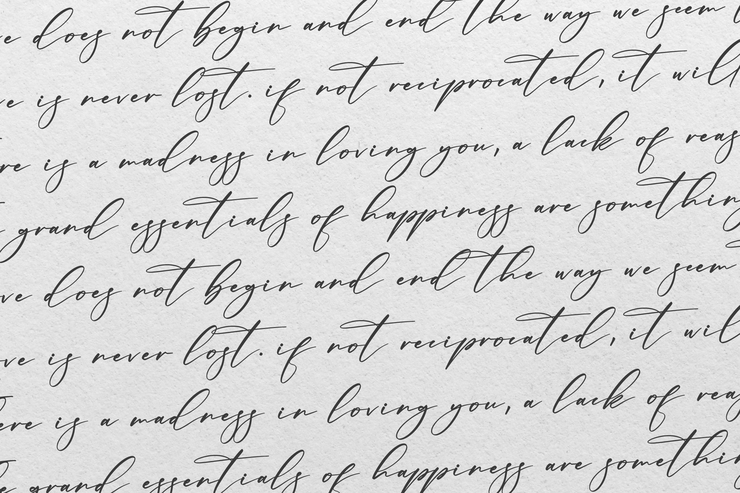 does not begin and end the way we seem
is never lost. if not reciprocated, it will
is a madness in loving you, a lack of
grand essentials of happiness are something
does not begin and end the way we seem
is never lost. if not reciprocated, it will
is a madness in loving you, a lack of
grand essentials of happiness are something